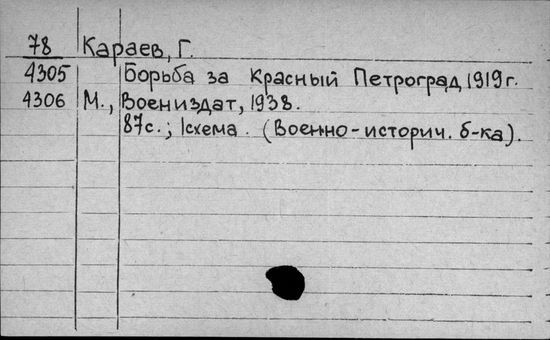 78 Караев, Г.
4305 Борьба за Красный Петроград 1919г.
4306 М., Воениздат, 1938.
87с.; 1схема. (Военно-историч. б-ка).